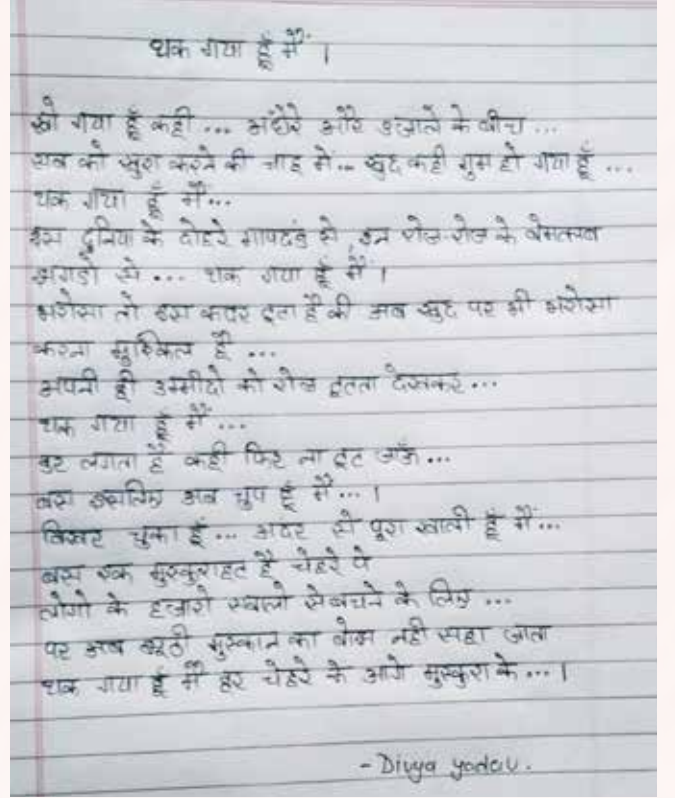 थक गया हूँ मैं ।
खो गया हूँ कही ... अंधेरे और उजाले के बीच ...
सब को खुश करने की चाह में... खुद कही गुम हो गया हूँ ...
थक गया हूँ मैं...
इस दुनिया के दोहरे मापदंड से, इन रोज-रोज के बेमतलब
झगडो से ... थक गया हूँ मैं ।
भरोसा तो इस कदर टूटा है की अब खुद पर भी भरोसा
करना मुश्किल है ...
अपनी ही उम्मीदो को रोज टूटता देखकर ...
थक गया हूँ मैं ...
डर लगता है कही फिर ना टूट जाऊँ ...
बस इसलिए अब चुप हूँ मैं ... ।
बिखर चुका हूँ ... अंदर से पूरा खाली हूँ मैं ...
बस एक मुस्कुराहट है चेहरे पे
लोगो के हजारो सवालो से बचने के लिए ...
पर अब झूठी मुस्कान का बोझ नही सहा जाता
थक गया हूँ मैं हर चेहरे के आगे मुस्कुरा के ... ।
- Divya yadav.